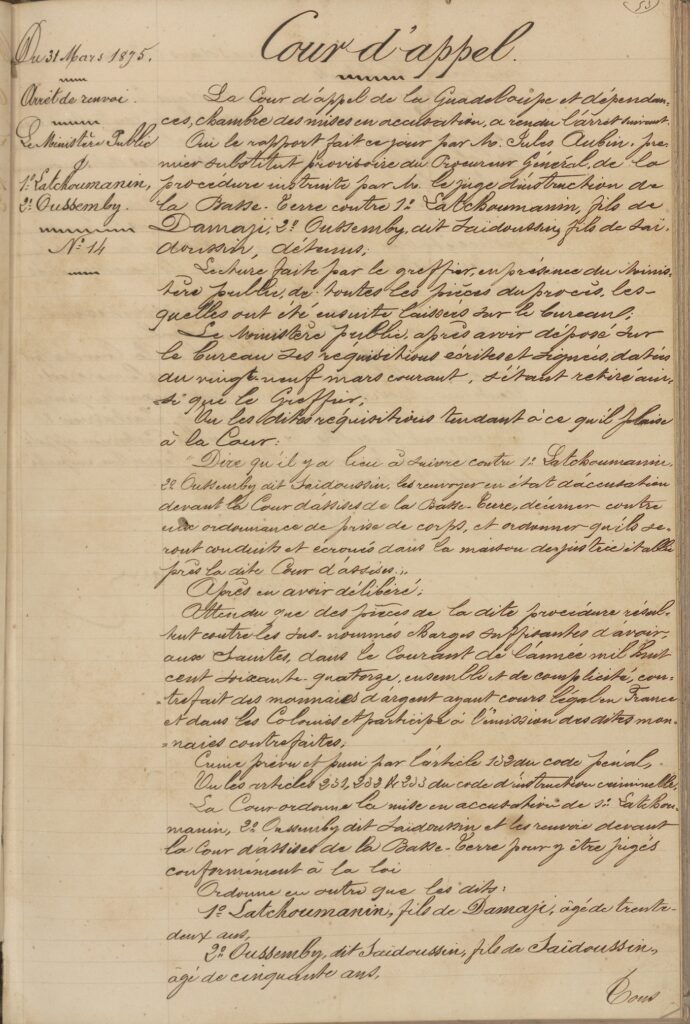 53
Du 31 Mars 1875.
Cour d'appel.
Arrêt de renvoi.
Le Ministère Public
C.
1º Latchoumanin,
2º Oussemby.
Nº 14
La Cour d'appel de la Guadeloupe et dépendan-
ces, chambre des mises en accusation, a rendu l'arrêt suivant.
Oui le rapport fait ce jour par Mr. Jules Aubin, pre-
mier substitut provisoire du Procureur Général, de la
procédure instruite par Mr. le juge d'instruction de
la Basse-Terre contre 1º Latchoumanin, fils de
Damaji, 2º Oussemby, dit Saïdoussin, fils de Saï-
doussin, détenus;
Lecture faite par le greffier, en présence du Minis-
tère public, de toutes les pièces du procès, les-
quelles ont été ensuite laissées sur le bureau;
Le Ministère public, après avoir déposé sur
le bureau ses réquisitions écrites et signées, datées
du vingt-neuf mars courant, s'étant retiré ain-
si que le Greffier;
Vu les dites réquisitions tendant à ce qu'il plaise
à la Cour:
Dire qu'il y a lieu à suivre contre 1º Latchoumanin,
2º Oussemby dit Saïdoussin, les renvoyer en état d'accusation
devant la Cour d'assises de la Basse-Terre, décerner contre
eux ordonnance de prise de corps, et ordonner qu'ils se-
ront conduits et écroués dans la maison de justice établie
près la dite Cour d'assises;
Après en avoir délibéré;
Attendu que des pièces de la dite procédure résul-
tent contre les sus-nommés charges suffisantes d'avoir,
aux Saintes, dans le courant de l'année mil huit
cent soixante-quatorze, ensemble et de complicité, con-
trefait des monnaies d'argent ayant cours légal en France
et dans les Colonies et participé à l'émission des dites mon-
naies contrefaites;
Crime prévu et puni par l'article 132 du code pénal,
Vu les articles 231, 232 & 233 du code d'instruction criminelle,
La Cour ordonne la mise en accusation de 1º Latchou-
manin, 2º Oussemby dit Saïdoussin et les renvoie devant
la Cour d'assises de la Basse-Terre pour y être jugés
conformément à la loi
Ordonne en outre que les dits:
1º Latchoumanin, fils de Damaji, âgé de trente-
deux ans,
2º Oussemby, dit Saïdoussin, fils de Saïdoussin,
âgé de cinquante ans,
Tous